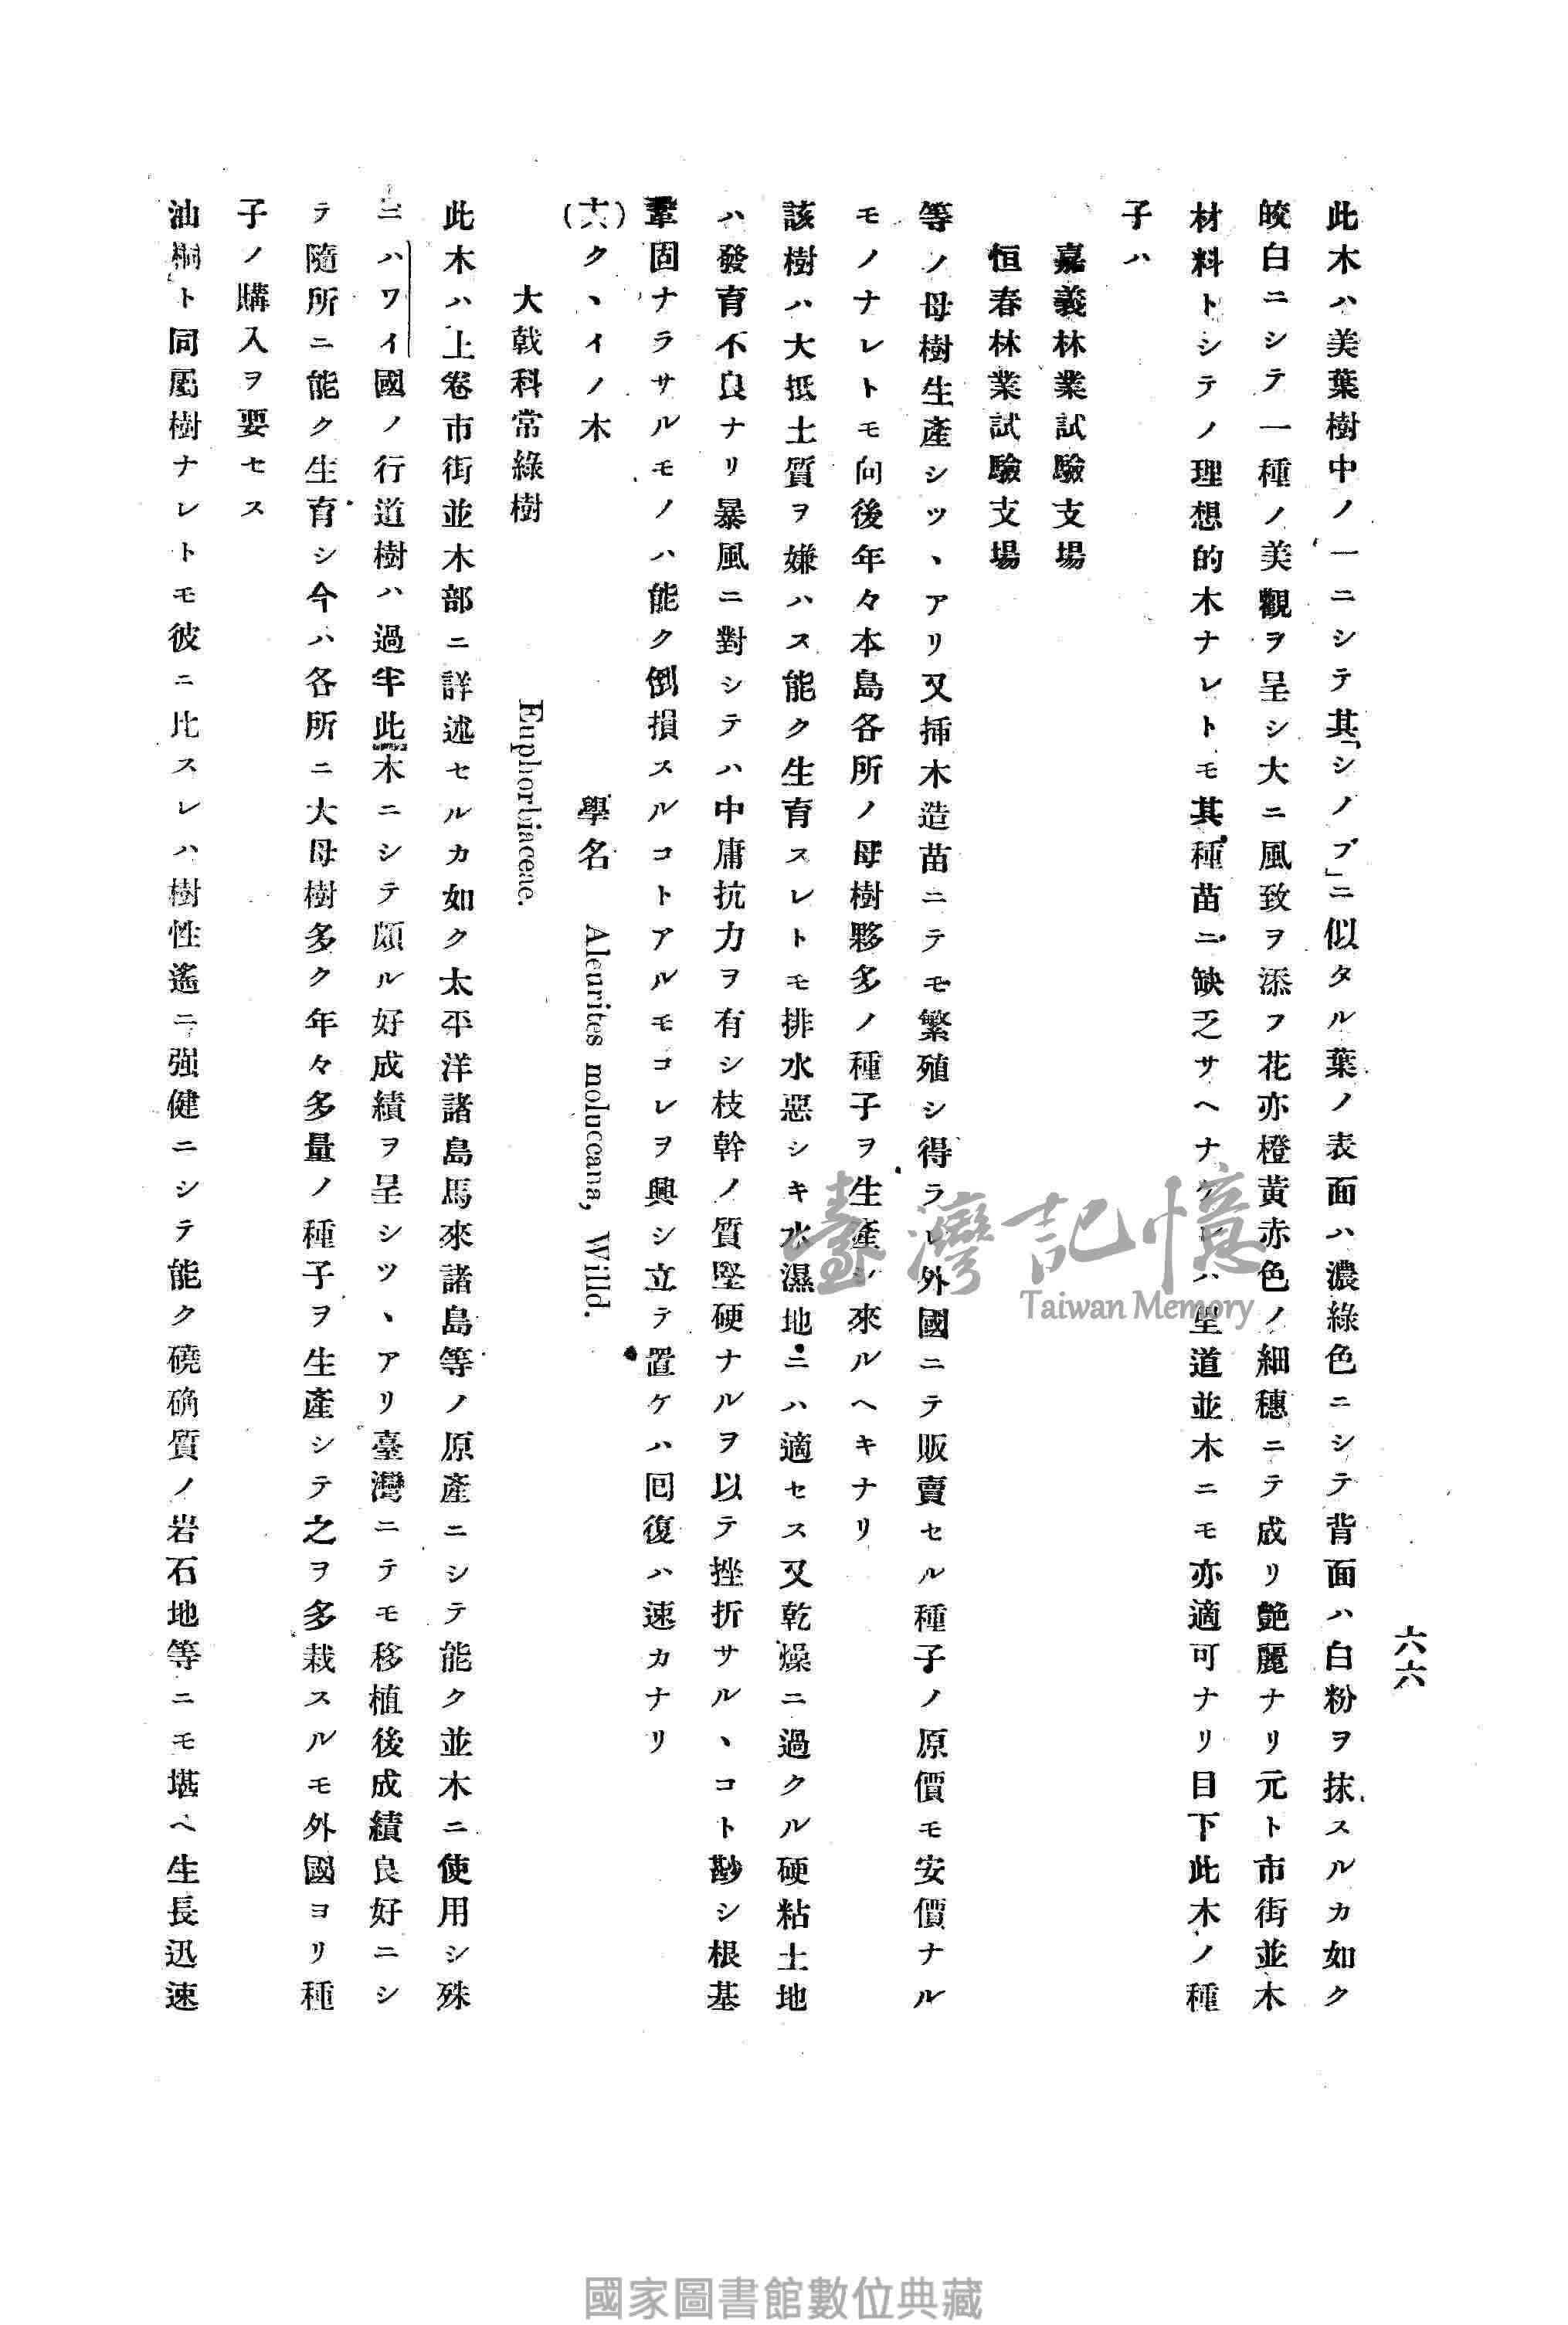 六六
此木ハ美葉樹中ノ一ニシテ其「シノブ」ニ似タル葉ノ表面ハ濃綠色ニシテ背面ハ白粉ヲ抹スルカ如ク
皎白ニシテ一種ノ美觀ヲ呈シ大ニ風致ヲ添フ花亦橙黃赤色ノ細穗ニテ成リ艶麗ナリ元ト市街並木
材料トシテノ理想的木ナレトモ其種苗ニ缺乏サヘナケレハ里道並木ニモ亦適可ナリ目下此木ノ種
子ハ
嘉義林業試驗支場
恒春林業試驗支場
等ノ母樹生產シツヽアリ又揷木造苗ニテモ繁殖シ得ラレ外國ニテ販賣セル種子ノ原價モ安價ナル
モノナレトモ向後年々本島各所ノ母樹夥多ノ種子ヲ生產シ來ルヘキナリ
該樹ハ大抵土質ヲ嫌ハス能ク生育スレトモ排水惡シキ水濕地ニハ適セス又乾燥ニ過クル硬粘土地
ハ發育不良ナリ暴風ニ對シテハ中庸抗力ヲ有シ枝幹ノ質堅硬ナルヲ以テ挫折サルヽコト尠シ根基
鞏固ナラサルモノハ能ク倒損スルコトアルモコレヲ興シ立テ置ケハ囘復ハ速カナリ
(六)クヽイノ木 學名 Aleurites moluccana, Willd.
大戟科常綠樹 Euphorbiaceae.
此木ハ上卷市街並木部ニ詳述セルカ如ク太平洋諸島馬來諸島等ノ原產ニシテ能ク並木ニ使用シ殊
ニハワイ國ノ行道樹ハ過半此木ニシテ頗ル好成績ヲ呈シツヽアリ臺灣ニテモ移植後成績良好ニシ
テ隨所ニ能ク生育シ今ハ各所ニ大母樹多ク年々多量ノ種子ヲ生產シテ之ヲ多栽スルモ外國ヨリ種
子ノ購入ヲ要セス
油桐ト同屬樹ナレトモ彼ニ比スレハ樹性遙ニ强健ニシテ能ク磽确質ノ岩石地等ニモ堪ヘ生長迅速
臺灣記憶
Taiwan Memory
國家圖書館數位典藏